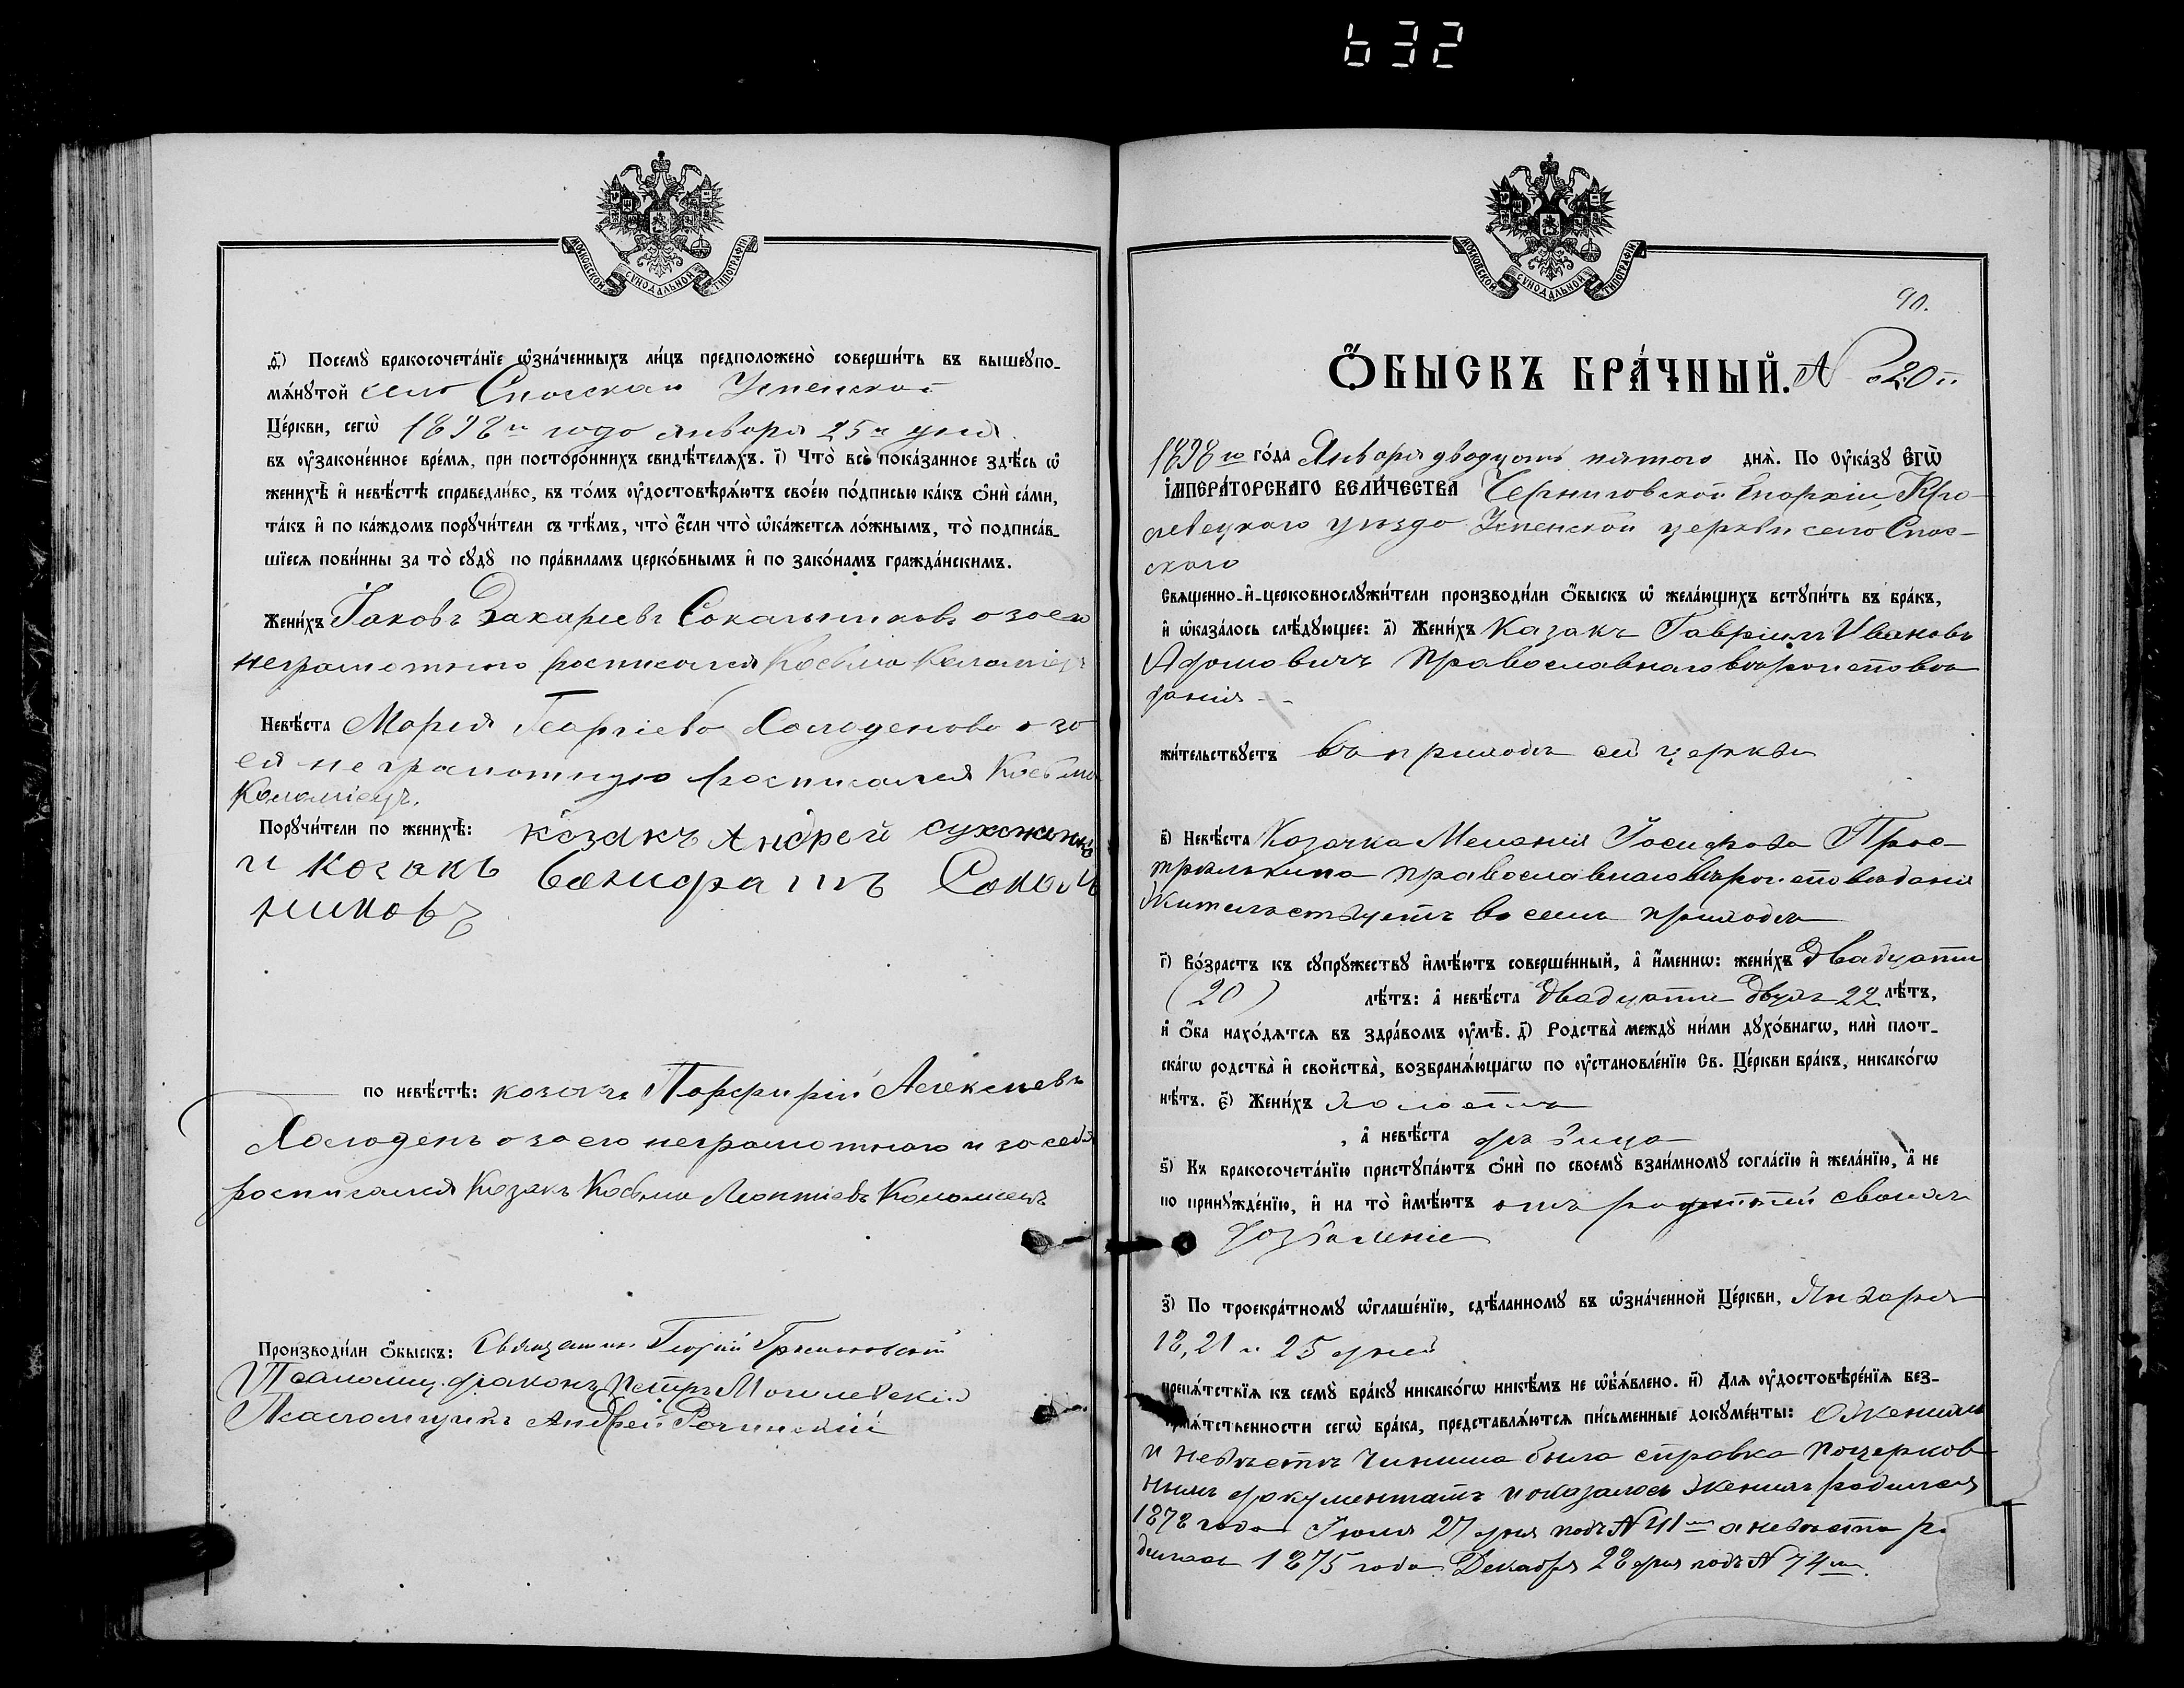 632
МОСКОВСКОЙ СУНОДАЛЬНОЙ ТИПОГРАФІИ
д҃) Посемꙋ̀ бракосочета́нїе ѡ҆зна́ченныхъ ли́цъ предположено̀ соверши́ть въ вышеꙋпо-
мѧ́нꙋтой село Спаскаи Успенской
Це́ркви, сегѡ̀ 1898 го года января 25 го дня
въ ᲂу҆законе́нное вре́мѧ, при посторо́ннихъ свидѣ́телѧхъ. і҃) Что̀ всѐ пока́занное здѣ́сь ѡ҆
женихѣ̀ и҆ невѣ́стѣ справедли́во, въ то́мъ ᲂу҆достовѣрѧ́ютъ свое́ю по́дписью ка́къ ѻ҆нѝ са́ми,
та́къ и҆ по ка́ждомъ порꙋчи́тели съ тѣ́мъ, что̀ є҆́сли что̀ ѡ҆ка́жетсѧ ло́жнымъ, то̀ подписа́в-
шїесѧ пови́нны за то̀ сꙋдꙋ̀ по пра́виламъ церко́внымъ и҆ по зако́намъ гражда́нскимъ.
Жени́хъ Іаковъ Захаріевъ Сокальниковъ а за его
неграмотного росписался Косьма Коломіецъ
Невѣ́ста Марія Георгіева Холоденова а за
ея неграмотную росписался Косьма
Коломіецъ.
Порꙋчи́тели по женихѣ̀: козакъ Андрей сухожон
и козакъ Сокол
никовъ
по невѣ́стѣ: козакъ Порфирій Алексѣевъ
Холоденъ а за его неграмотного и за себя
росписался Козакъ Косьма Леонтіевъ Коломіецъ
Производи́ли ѻ҆́быскъ: Священникъ Георгій
Псаломщ. діаконъ Петръ Могилевскій
Псаломщикъ Андрей Рочинскій
МОСКОВСКОЙ СУНОДАЛЬНОЙ ТИПОГРАФІИ
90.
Ѻ҆́БЫСКЪ БРА́ЧНЫЙ. № 20 й
1898 го го́да Января двадцать пятого днѧ̀. По Оу҆ка́зꙋ Є҆ГѠ̀
І҆МПЕРА́ТОРСКАГО ВЕЛИ́ЧЕСТВА Черниговской Епархіи, Кро-
левецкаго уѣзда Успенской церкви села Спас-
скаго
Свѧще́нно-и҆-церковнослꙋжи́тели производи́ли ѻ҆́быскъ ѡ҆ жела́ющихъ встꙋпи́ть въ бра́къ,
и҆ ѡ҆каза́лось слѣ́дꙋющее: а҃) Жени́хъ Казакъ Гавріилъ Ивановъ
Адамовичъ православнаго вѣроисповѣ
данія --
жи́тельствꙋетъ въ приходѣ сей церкви
в҃) Невѣ́ста Козачка Меланія Іосифова Прос-
трелкина православнаго вѣроисповѣданія
Жительствуетъ въ семъ приходѣ
г҃) Во́зрастъ къ сꙋпрꙋжествꙋ и҆мѣ́ютъ соверше́нный, а҆ и҆́меннѡ: жени́хъ двадцати
(20) лѣ́тъ: а҆ невѣ́ста двадцати двухъ 22 лѣ́тъ,
и҆ ѻ҆́ба нахо́дѧтсѧ въ здра́вомъ ᲂу҆мѣ̀. д҃) Родства̀ междꙋ̀ ни́ми дꙋхо́внагѡ, и҆лѝ плот-
ска́гѡ родства̀ и҆ свойства̀, возбранѧ́ющагѡ по ᲂу҆становле́нїю Св. Це́ркви бра́къ, никако́гѡ
нѣ́тъ. є҃) Жени́хъ холостъ
, а҆ невѣ́ста дѣвица
ѕ҃) Къ бракосочета́нїю пристꙋпа́ютъ ѻ҆нѝ по своемꙋ̀ взаи́мномꙋ согла́сїю и҆ жела́нїю, а҆ не
по принꙋжде́нїю, и҆ на то̀ и҆мѣ́ютъ отъ родителей своихъ
дозволеніе
з҃) По троекра́тномꙋ ѡ҆глаше́нїю, сдѣ́ланномꙋ въ ѡ҆зна́ченной Це́ркви, Января
18, 21 и 25 дней
препѧ́тствїѧ къ семꙋ̀ бра́кꙋ никако́гѡ никѣ́мъ не ѡ҆б̾ѧ́влено. и҃) Длѧ ᲂу҆достовѣре́нїѧ без-
препѧ́тственности сегѡ̀ бра́ка, представлѧ́ютсѧ пи́сьменные докꙋме́нты: О женихѣ
и невѣстѣ чинима была справка по церков
нымъ документамъ и оказалось женихъ родился
1878 года Іюля 27 дня подъ № 41 а невѣста р
дилась 1875 года Декабря 28 дня подъ № 74 мъ.